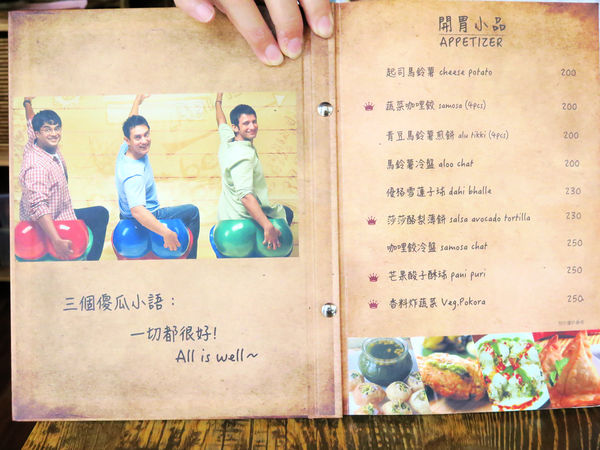 三個傻瓜小語：
一切都很好!
All is well~
開胃小品
APPETIZER
起司馬鈴薯 cheese potato 200
蔬菜咖哩餃 samosa (4pcs) 200
青豆馬鈴薯煎餅 alu tikki (4pcs) 200
馬鈴薯冷盤 aloo chat 200
優格雪蓮子球 dahi bhalle 230
莎莎酪梨薄餅 salsa avocado tortilla 230
咖哩餃冷盤 samosa chat 250
芒果酸子酥球 pani puri 250
香料炸蔬菜 Veg.Pokora 250